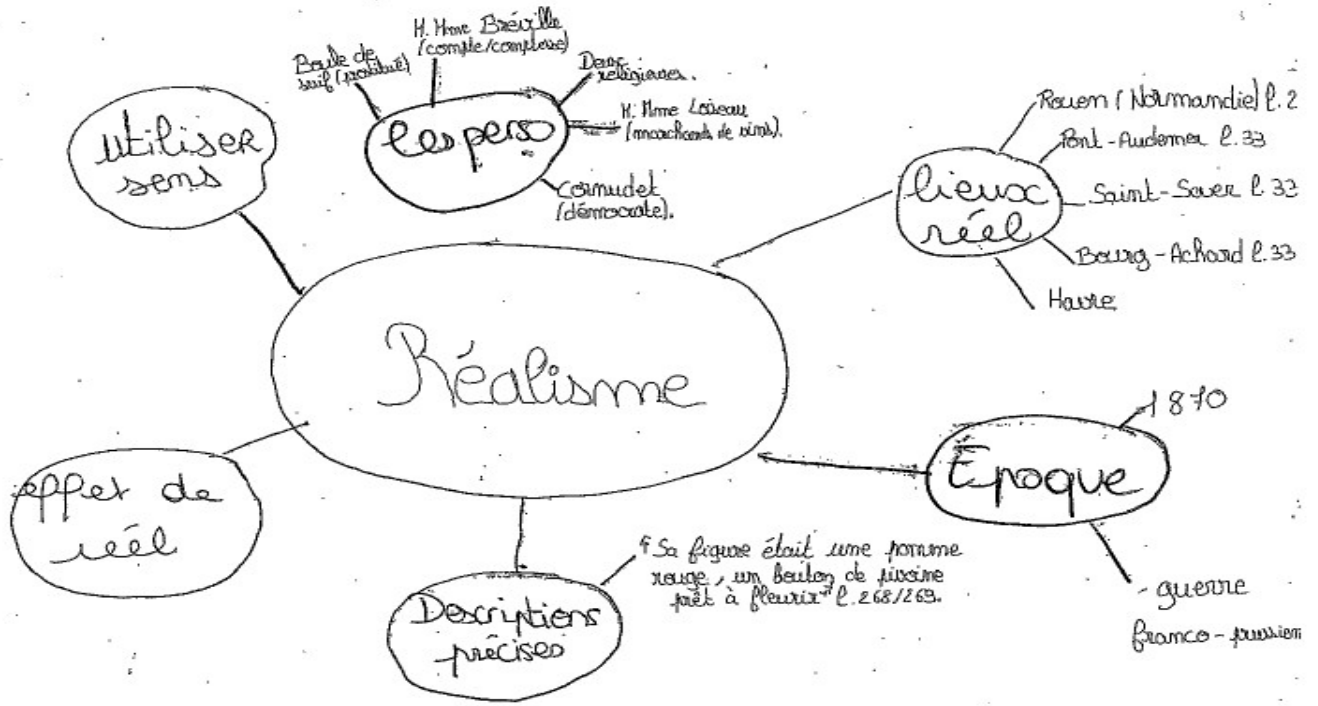 Réalisme
utiliser
sens
les perso
Boule de
suif (prostitué)
M. Mme Bréville
(compte/comptesse)
Deux
religieuses.
M. Mme Loiseau
(marchands de vins).
Cornudet
(démocrate).
lieux
réel
Rouen (Normandie) l. 2
Pont-Audemer l. 33
Saint-Sever l. 33
Bourg-Achard l. 33
Havre
Époque
1870
- guerre
franco-prussien
Descriptions
précises
"Sa figure était une pomme
rouge, un bouton de pivoine
prêt à fleurir" l. 268/269.
effet de
réel